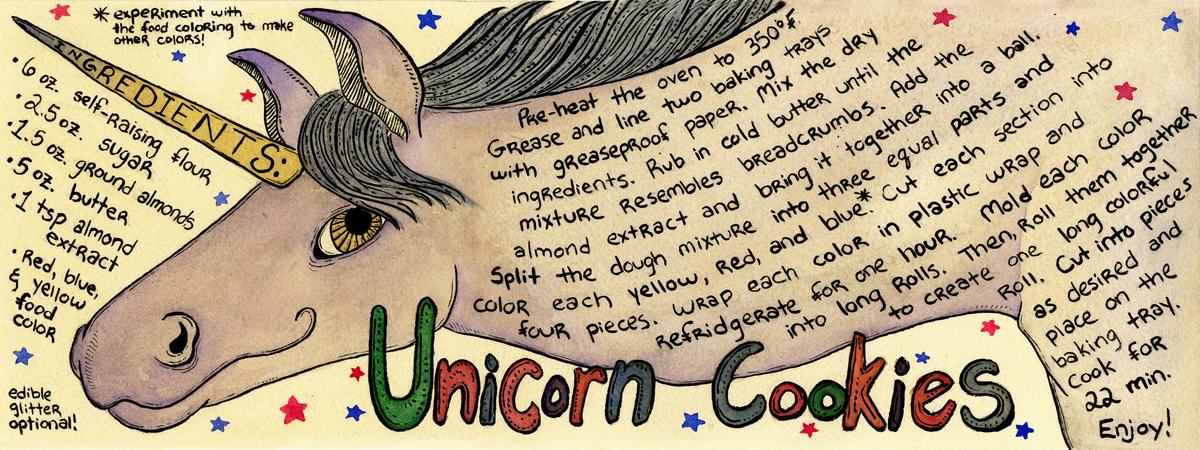 * experiment with
the food coloring to make
other colors!
INGREDIENTS:
• 6 oz. self-raising flour
• 2.5 oz. sugar
• 1.5 oz. ground almonds
• 5 oz. butter
• 1 tsp almond
extract
• Red, blue,
& yellow
food
color
edible
glitter
optional!
Pre-heat the oven to 350°F.
Grease and line two baking trays
with greaseproof paper. Mix the dry
ingredients. Rub in cold butter until the
mixture resembles breadcrumbs. Add the
almond extract and bring it together into a ball.
Split the dough mixture into three equal parts and
color each yellow, red, and blue.* Cut each section into
four pieces. Wrap each color in plastic wrap and
refridgerate for one hour. Mold each color
into long rolls. Then, roll them together
to create one long colorful
roll. Cut into pieces
as desired and
place on the
baking tray.
Cook for
22 min.
Enjoy!
Unicorn Cookies